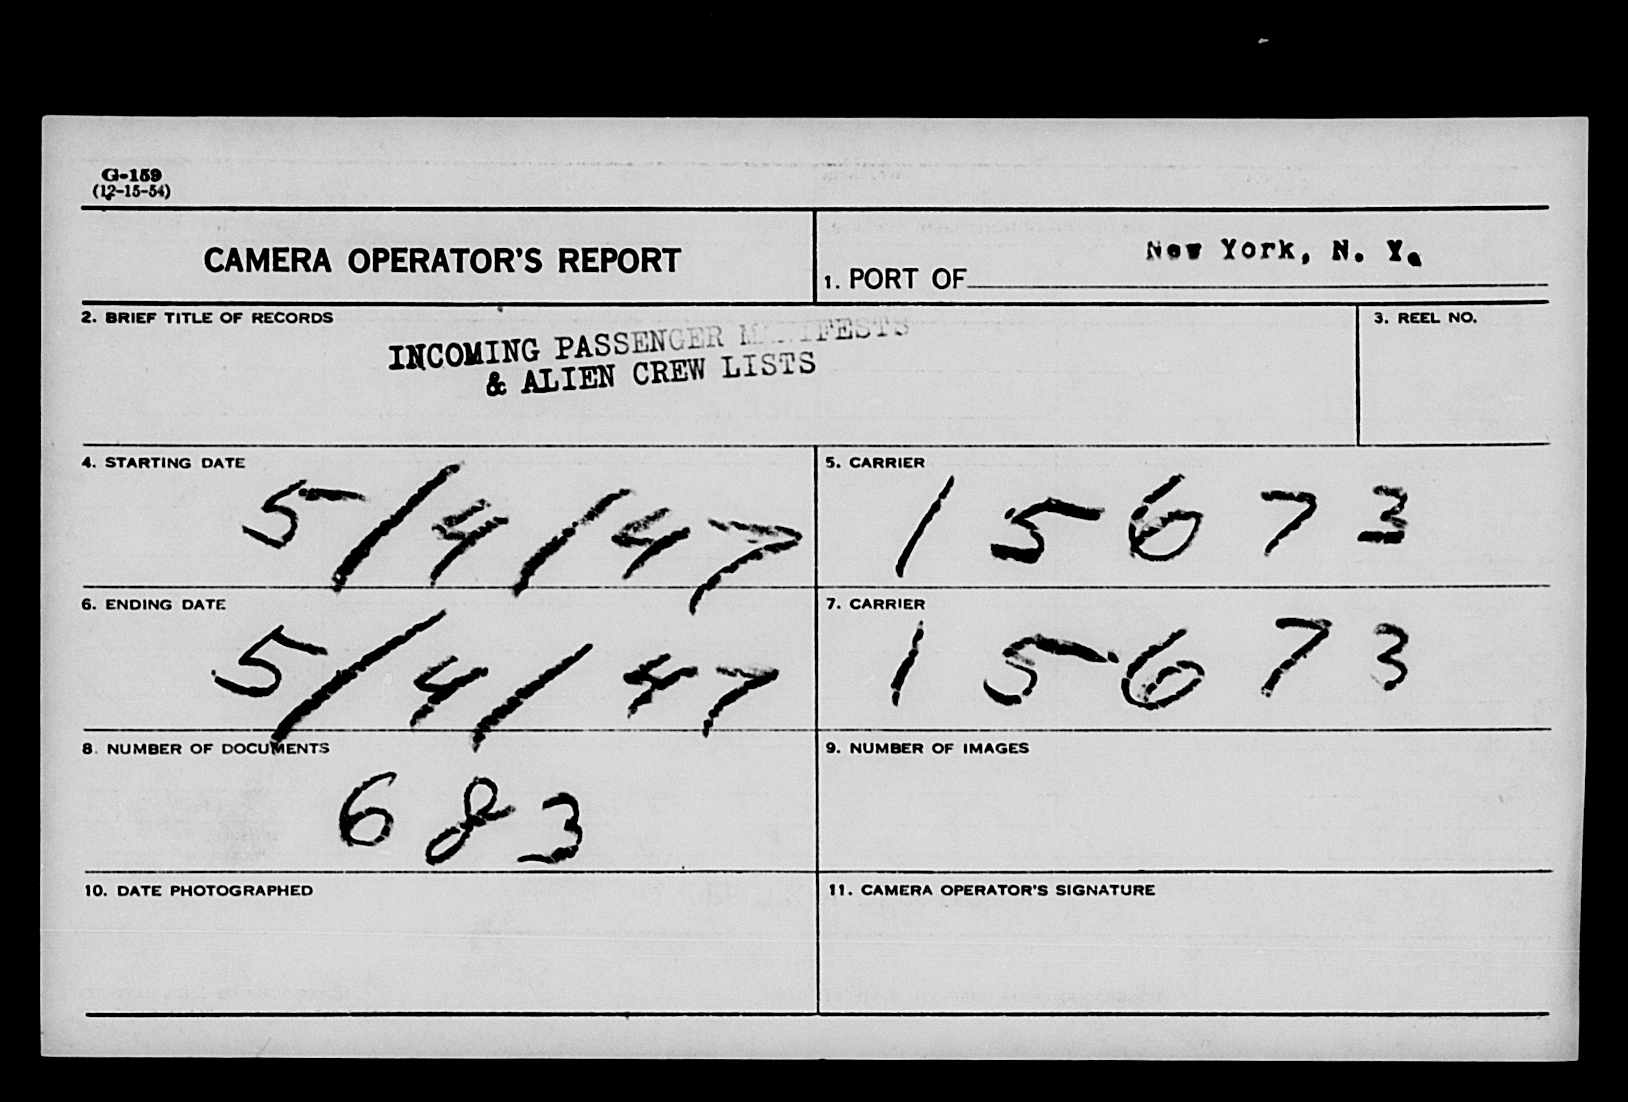 G-159
(12-15-54)
CAMERA OPERATOR'S REPORT
1. PORT OF New York, N. Y.
2. BRIEF TITLE OF RECORDS
INCOMING PASSENGER MANIFESTS
& ALIEN CREW LISTS
3. REEL NO.
4. STARTING DATE
5/4/47
5. CARRIER
15673
6. ENDING DATE
5/4/47
7. CARRIER
15673
8. NUMBER OF DOCUMENTS
683
9. NUMBER OF IMAGES
10. DATE PHOTOGRAPHED
11. CAMERA OPERATOR'S SIGNATURE